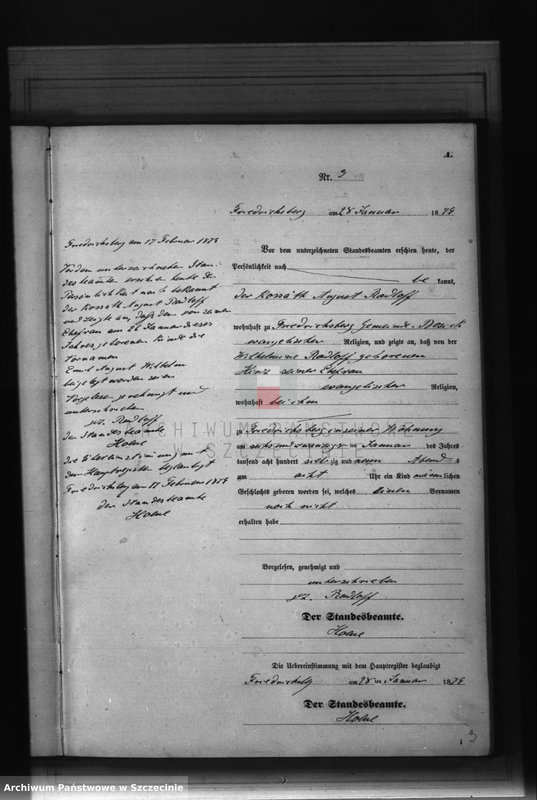 A.
Nr. 3
Friedrichsberg am 28 Januar 1879
Vor dem unterzeichneten Standesbeamten erschien heute, der
Persönlichkeit nach
be kannt,
der Kossäth August Radloff
wohnhaft zu Friedrichsberg Gemeinde
evangelischer Religion, und zeigte an, daß von der
Wilhelmine Radloff geborenen
Hinz seiner Ehefrau
evangelischer Religion,
wohnhaft bei ihm
zu Friedrichsberg in seiner Wohnung
am sechs und zwanzigsten Januar des Jahres
tausend acht hundert siebzig und neun Abends
um acht Uhr ein Kind männlichen
Geschlechts geboren worden sei, welches einen Vornamen
noch nicht
erhalten habe
Vorgelesen, genehmigt und
unterschrieben
gz. Radloff
Der Standesbeamte.
Die Uebereinstimmung mit dem Hauptregister beglaubigt
Friedrichsberg am 28 ten Januar 1879
Der Standesbeamte.
Friedrichsberg am 17 Februar 1879
Vor dem unterzeichneten Stan-
desbeamten erschien heute der
Persönlichkeit nach bekannt
der Kossäth August Radloff
und zeigte an, daß dem von seiner
Ehefrau am 26 Januar dieses
Jahres geborenen Kinde die
Vornamen
Emil August Wilhelm
beigelegt worden seien
Vorgelesen genehmigt und
unterschrieben
gz. Radloff
der Standesbeamte
Die Uebereinstimmung mit
dem Hauptregister beglaubigt
Friedrichsberg am 17 Februar 1879
der Standesbeamte
ARCHIWUM PAŃSTWOWE
W SZCZECINIE
1
3
Archiwum Państwowe w Szczecinie